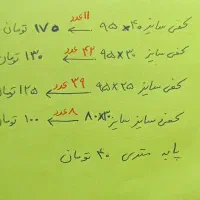 کفی سایز ۴۰*۹۵ ← ۱۱ عدد ۱۷۵ تومان
کفی سایز ۳۰*۹۵ ← ۴۲ عدد ۱۳۰ تومان
کفی سایز ۲۵*۹۵ ← ۳۹ عدد ۱۲۵ تومان
کفی سایز سایز ۳۰*۸۰ ← ۸ عدد ۱۰۰ تومان
پایه متری ۴۰ تومان